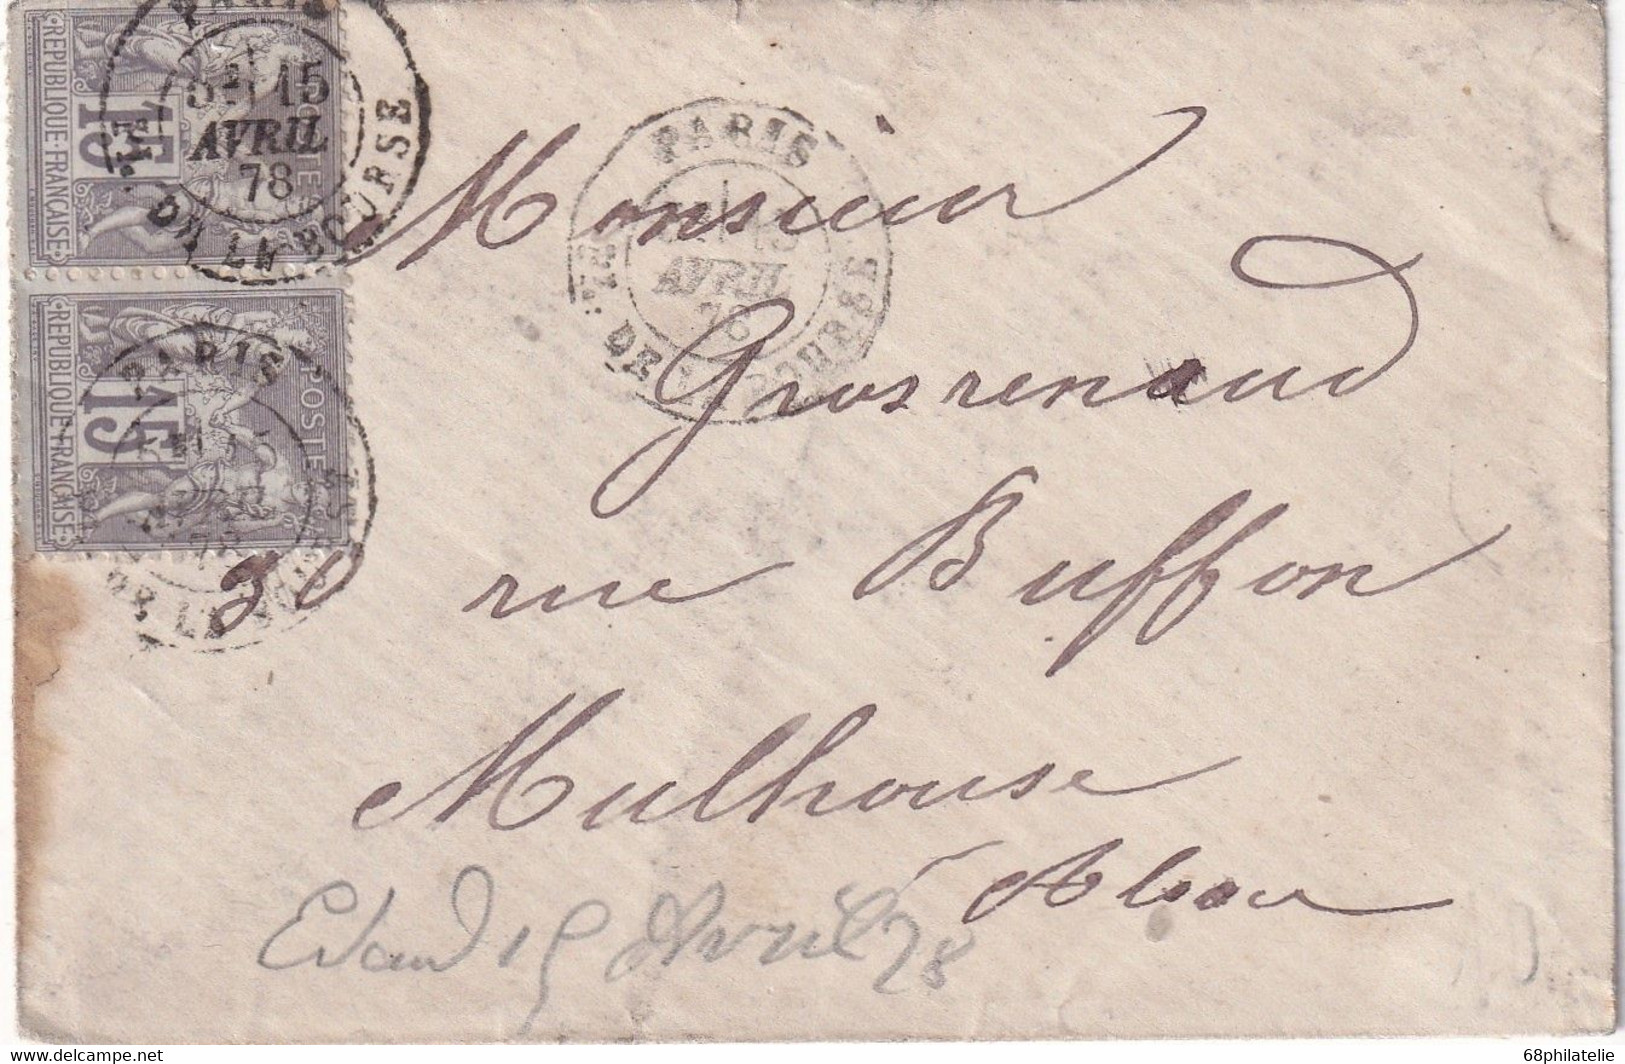 REPUBLIQUE·FRANÇAISE
15
POSTE
PARIS
15
AVRIL
78
PL. DE LA BOURSE
REPUBLIQUE·FRANÇAISE
15
POSTE
PARIS
78
DE LA BOURSE
PARIS
15
AVRIL
78
PL. DE LA BOURSE
Monsieur
Grosrenaud
30 rue Buffon
Mulhouse
Alsace
Edouard 15 Avril 78
68philatelie